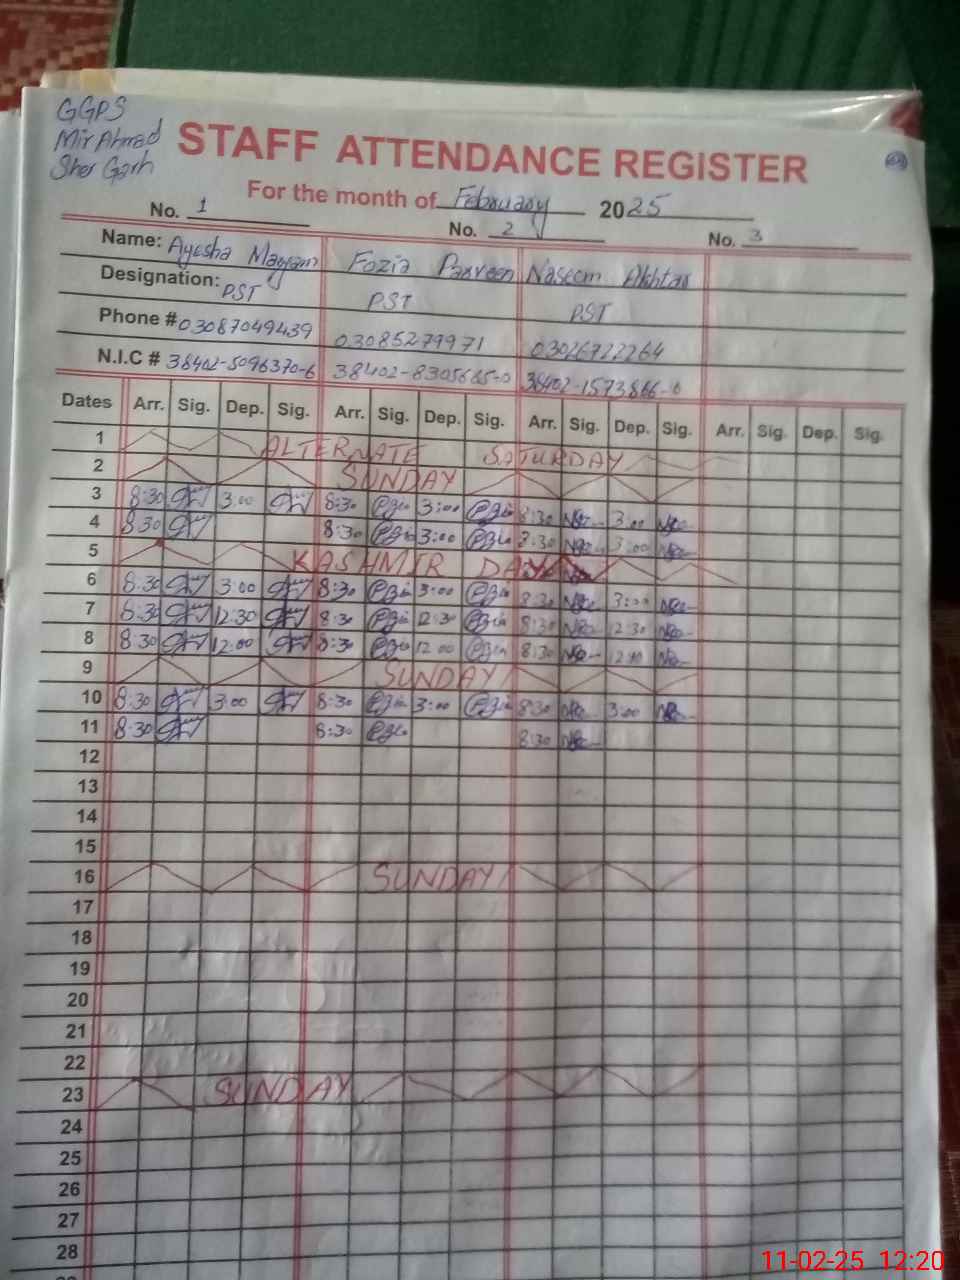 GGPS
Mir Ahmad
Sher Garh
STAFF ATTENDANCE REGISTER
For the month of February 2025
No. 1 No. 2 No. 3
Name: Ayesha Maryam Fozia Parveen Naseem Akhtar
Designation: PST PST PST
Phone # 03087049439 03085279971 03026722264
N.I.C # 38402-5096370-6 38402-8305685-0 38402-1573866-6
Dates Arr. Sig. Dep. Sig. Arr. Sig. Dep. Sig. Arr. Sig. Dep. Sig. Arr. Sig. Dep. Sig.
1 ALTERNATE SATURDAY
2 SUNDAY
3 8:30 3:00 8:30 3:00 8:30 3:00
4 8:30 8:30 3:00 8:30 3:00
5 KASHMIR DAY
6 8:30 3:00 8:30 3:00 8:30 3:00
7 8:30 12:30 8:30 12:30 8:30 12:30
8 8:30 12:00 8:30 12:00 8:30
9 SUNDAY
10 8:30 3:00 8:30 3:00 8:30 3:00
11 8:30 8:30 8:30
12
13
14
15
16 SUNDAY
17
18
19
20
21
22
23 SUNDAY
24
25
26
27
28
11-02-25 12:20